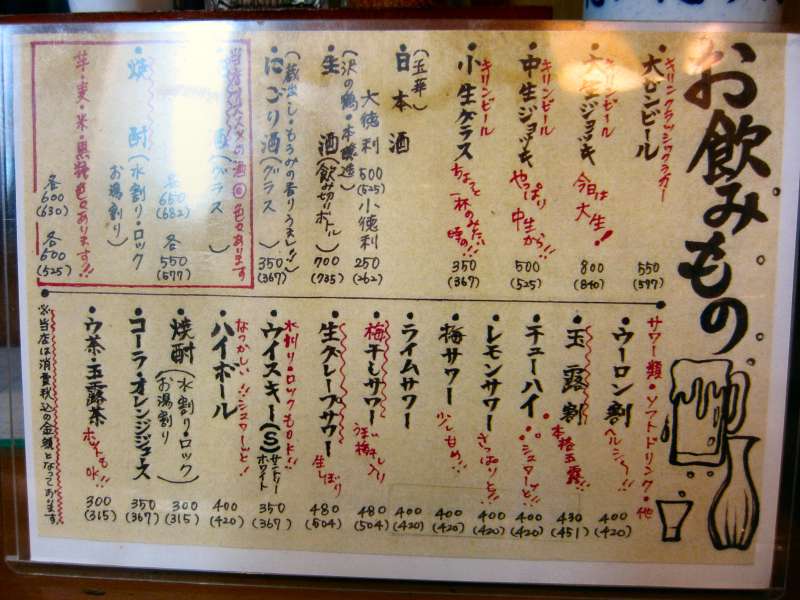 お飲みもの
キリンクラシックラガー
・大ビンビール
550
(577)
キリンビール
・大生ジョッキ
今日は大生!
800
(840)
キリンビール
・中生ジョッキ
やっぱり中生から!!
500
(525)
キリンビール
・小生グラス
ちょっと一杯のみたい時の!!
350
(367)
・日本酒
(玉華)
大徳利
500
(525)
小徳利
250
(262)
・生酒(飲み切りボトル)
(沢の鶴・本醸造)
700
(735)
・にごり酒(グラス)
(蔵出し・もろみの香りうえし!!)
350
(367)
当店オススメの酒 色々あります
酒(グラス)
各650
(682)
各550
(577)
・焼酎(水割り・ロック
お湯割り)
芋・麦・米・黒糖色々あります!!
各600
(630)
各500
(525)
サワー類・ソフトドリンク・他
・ウーロン割
ヘルシー!!
400
(420)
・玉露割
本格玉露!!
430
(451)
・チューハイ
シュワー!!
400
(420)
・レモンサワー
さっぱりと!!
400
(420)
・梅サワー
少し甘め!!
400
(420)
・ライムサワー
400
(420)
・梅干しサワー
梅干し入り
480
(504)
・生グレープサワー
生しぼり
480
(504)
・ウイスキー(S)
サントリーホワイト
水割り・ロックもOK!!
350
(367)
・ハイボール
なつかしい!!シュワーと!
400
(420)
・焼酎(水割り・ロック)
お湯割り
300
(315)
・コーラ・オレンジジュース
350
(367)
・ウ茶・玉露茶
ホットもOK!!
300
(315)
※当店は消費税込の金額となってあります。